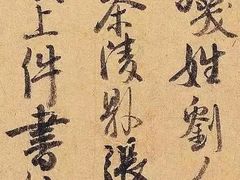 姓劉
茶陵縣張
上件書